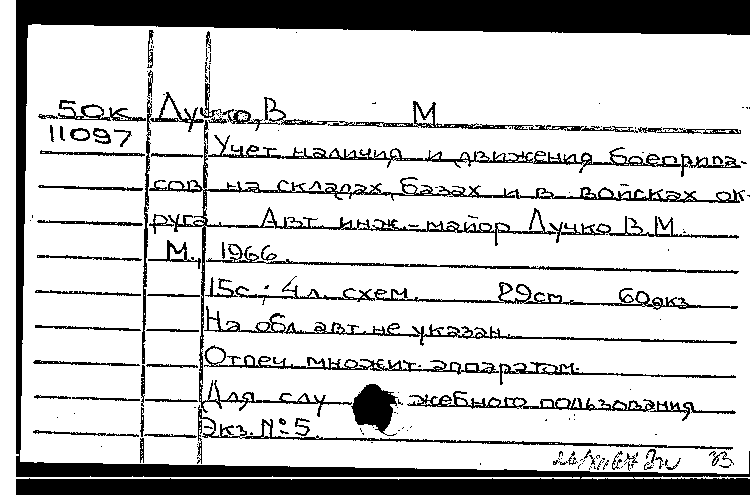 50к Лучко, В М
11097
Учет наличия и движения боеприпа-
сов на складах, базах и в войсках ок-
руга. Авт. инж.-майор Лучко В.М.
М., 1966.
15с.; 4 л. схем. 29см. 60экз.
На обл. авт. не указан.
Отпеч. множит. аппаратом.
Для служебного пользования
Экз. №5.